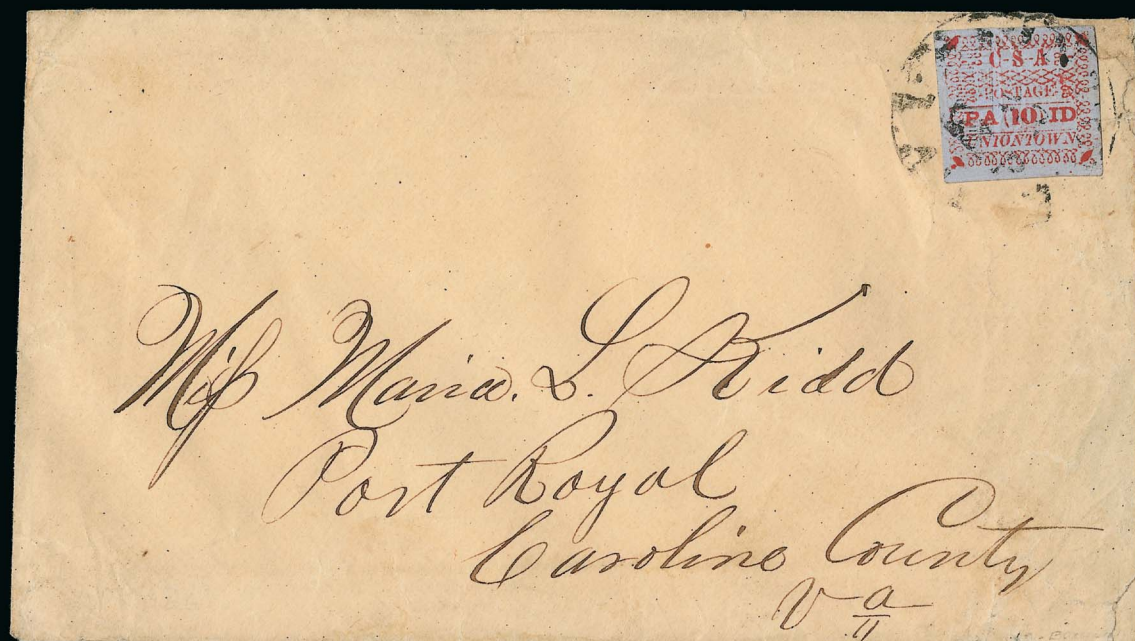 C-S-A
POSTAGE
PA 10 ID
UNIONTOWN
Miſs Maria. L. Kidd
Port Royal
Caroline County
Va